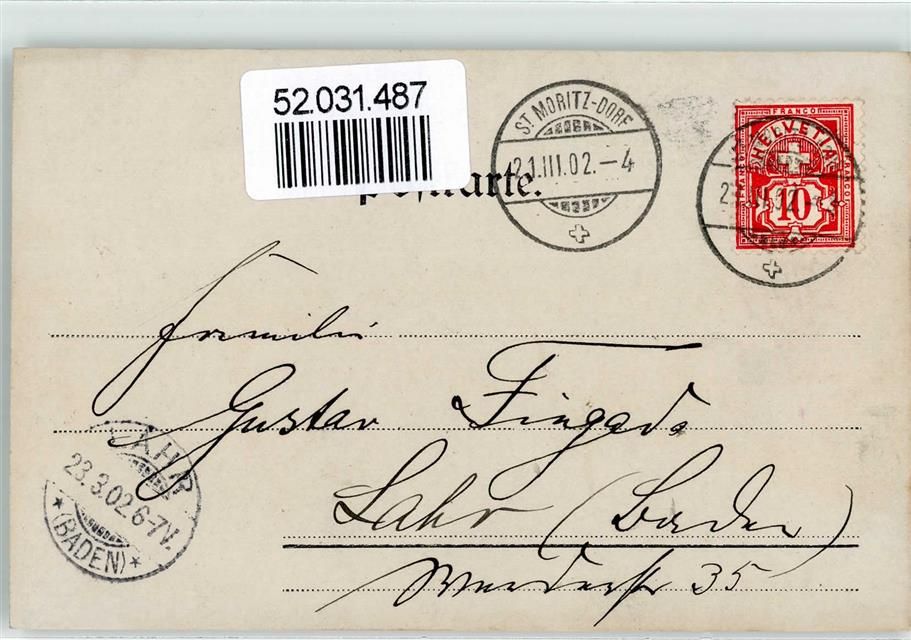 52.031.487
Postkarte.
ST. MORITZ-DORF
21.III.02.-4
FRANCO
HELVETIA
FRANCO
FRANCO
10
Familie
Gustav Fingado
LAHR
23.3.02.6-7V.
(BADEN)
Lahr (Baden)
35